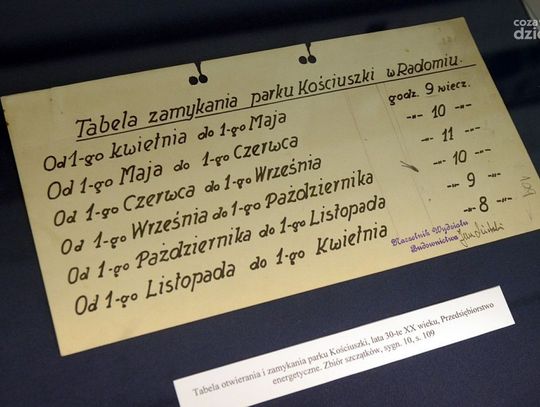 coza
dzie
Tabela zamykania parku Kościuszki w Radomiu.
Od 1-go kwietnia do 1-go Maja godz. 9 wiecz.
Od 1-go Maja do 1-go Czerwca -"- 10 -"-
Od 1-go Czerwca do 1-go Września -"- 11 -"-
Od 1-go Września do 1-go Października -"- 10 -"-
Od 1-go Października do 1-go Listopada -"- 9 -"-
Od 1-go Listopada do 1-go Kwietnia -"- 8 -"-
Naczelnik Wydziału
Budownictwa
109
Tabela otwierania i zamykania parku Kościuszki, lata 30-te XX wieku, Przedsiębiorstwo
energetyczne. Zbiór szczątków, sygn. 10, s. 109